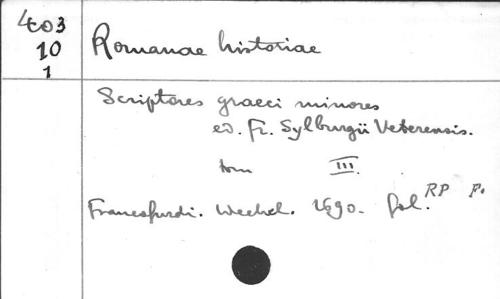 403
10
1
Romanae historiae
Scriptores graeci minores
ed. Fr. Sylburgii Veterensis.
tom III.
Francofurdi. Wechel. 1590. fol. RP P.